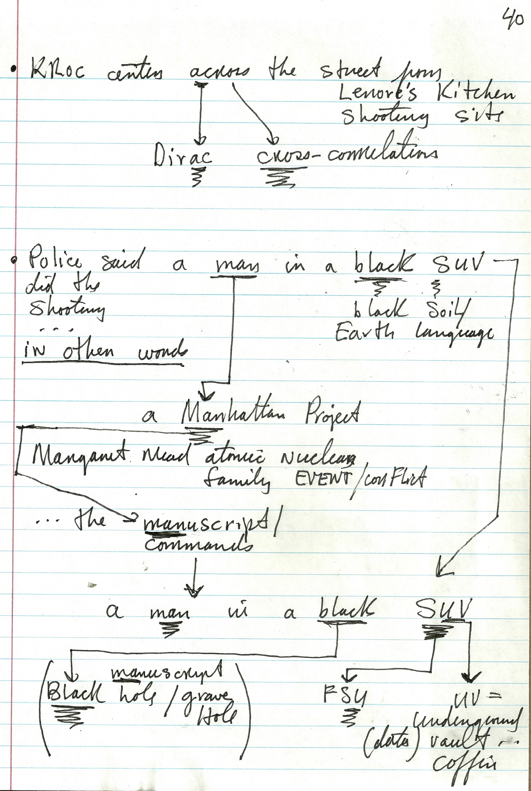 40
• KRoc center across the street from
Lenore's Kitchen
shooting site
Dirac cross-correlations
• Police said a man in a black SUV
did the
shooting
...
in other words
black Soil/
Earth language
a Manhattan Project
Margaret Mead atomic nuclear
family EVENT/conflict
... the manuscript/
commands
a man in a black SUV
manuscript
(Black hole / grave
Hole)
FSU
UV =
underground
(data) vault ...
coffin